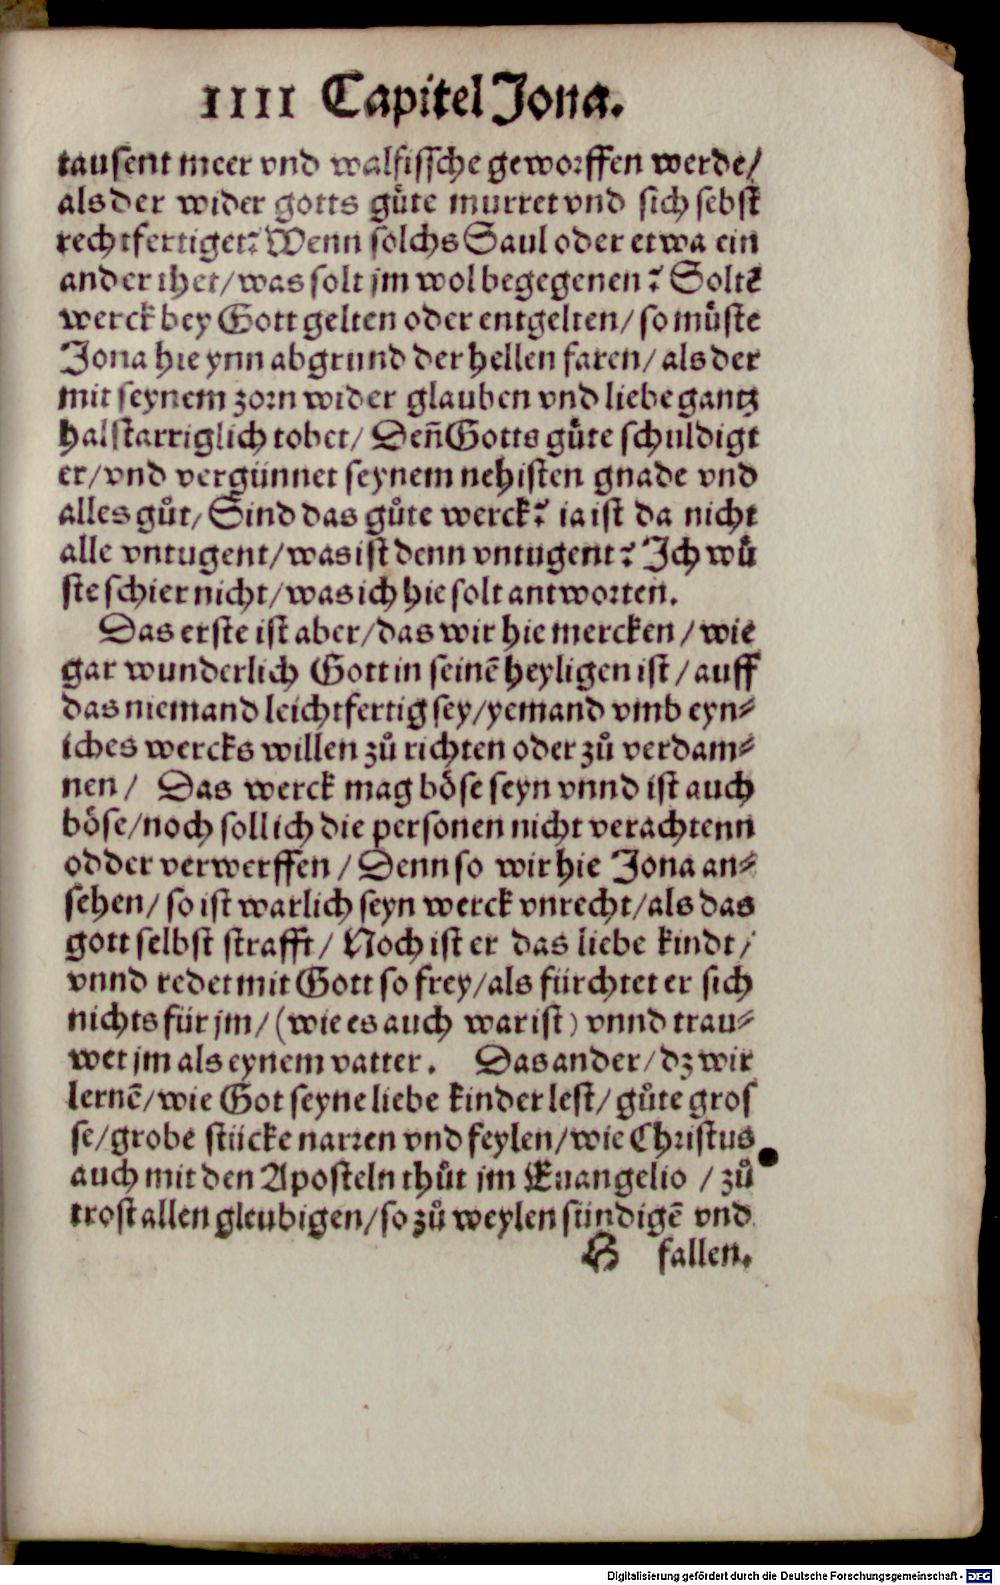 IIII Capitel Jona.
tausent meer vnd walfissche geworffen werde/
als der wider gotts guͤte murret vnd sich sebst
rechtfertiget? Wenn solchs Saul oder etwa ein
ander thet/was solt jm wol begegenen? Soltē
werck bey Gott gelten oder entgelten/so muͤste
Jona hie ynn abgrund der hellen faren/als der
mit seynem zorn wider glauben vnd liebe gantz
halstarriglich tobet/ Den̄ Gotts guͤte schuldigt
er/vnd vergünnet seynem nehisten gnade vnd
alles guͦt/ Sind das guͦte werck? ia ist da nicht
alle vntugent/was ist denn vntugent? Ich wuͤ
ste schier nicht/was ich hie solt antworten.
Das erste ist aber/das wir hie mercken/wie
gar wunderlich Gott in seinē heyligen ist/auff
das niemand leichtfertig sey/yemand vmb eyn-
iches wercks willen zuͦ richten oder zuͦ verdam-
nen/ Das werck mag böse seyn vnnd ist auch
böse/noch soll ich die personen nicht verachtenn
odder verwerffen/Denn so wir hie Jona an-
sehen/so ist warlich seyn werck vnrecht/als das
gott selbst strafft/ Noch ist er das liebe kindt/
vnnd redet mit Gott so frey/als fürchtet er sich
nichts für jm/(wie es auch war ist) vnnd trau-
wet jm als eynem vatter. Das ander/dz wir
lernē/wie Got seyne liebe kinder lest/guͦte gros
se/grobe stücke narren vnd feylen/wie Christus
auch mit den Aposteln thuͦt jm Euangelio/zuͦ
trost allen gleubigen/so zuͦ weylen sündigē vnd
G fallen.
Digitalisierung gefördert durch die Deutsche Forschungsgemeinschaft - DFG